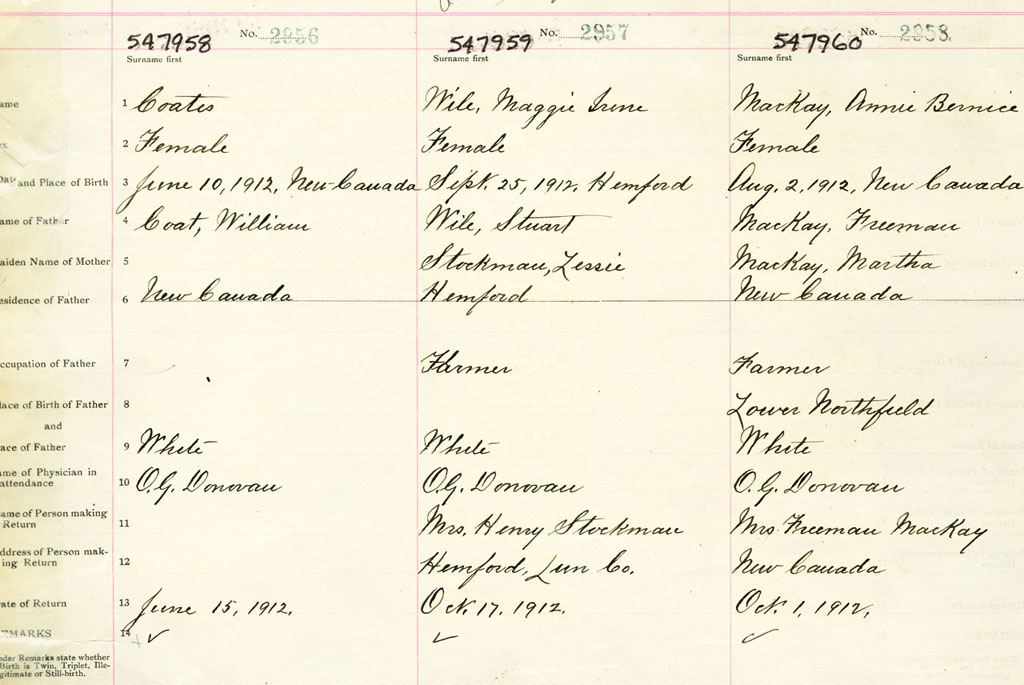 547958 No. 2956 547959 No. 2957 547960 No. 2958
Surname first Surname first Surname first
ame 1 Coates Wile, Maggie Irene MacKay, Annie Bernice
ex 2 Female Female Female
Date and Place of Birth 3 June 10, 1912, New Canada Sept. 25, 1912, Hemford Aug. 2, 1912, New Canada
ame of Father 4 Coat, William Wile, Stuart MacKay, Freeman
aiden Name of Mother 5 Stockman, Lessie MacKay, Martha
esidence of Father 6 New Canada Hemford New Canada
ccupation of Father 7 Farmer Farmer
lace of Birth of Father 8 Lower Northfield
and
ace of Father 9 White White White
ame of Physician in
attendance 10 O.G. Donovan O.G. Donovan O.G. Donovan
ame of Person making
Return 11 Mrs. Henry Stockman Mrs. Freeman MacKay
ddress of Person mak-
ing Return 12 Hemford, Lun Co. New Canada
ate of Return 13 June 15, 1912. Oct. 17, 1912. Oct. 1, 1912.
EMARKS 14 ✓ ✓ ✓
nder Remarks state whether
Birth is Twin, Triplet, Ille-
gitimate or Still-birth.